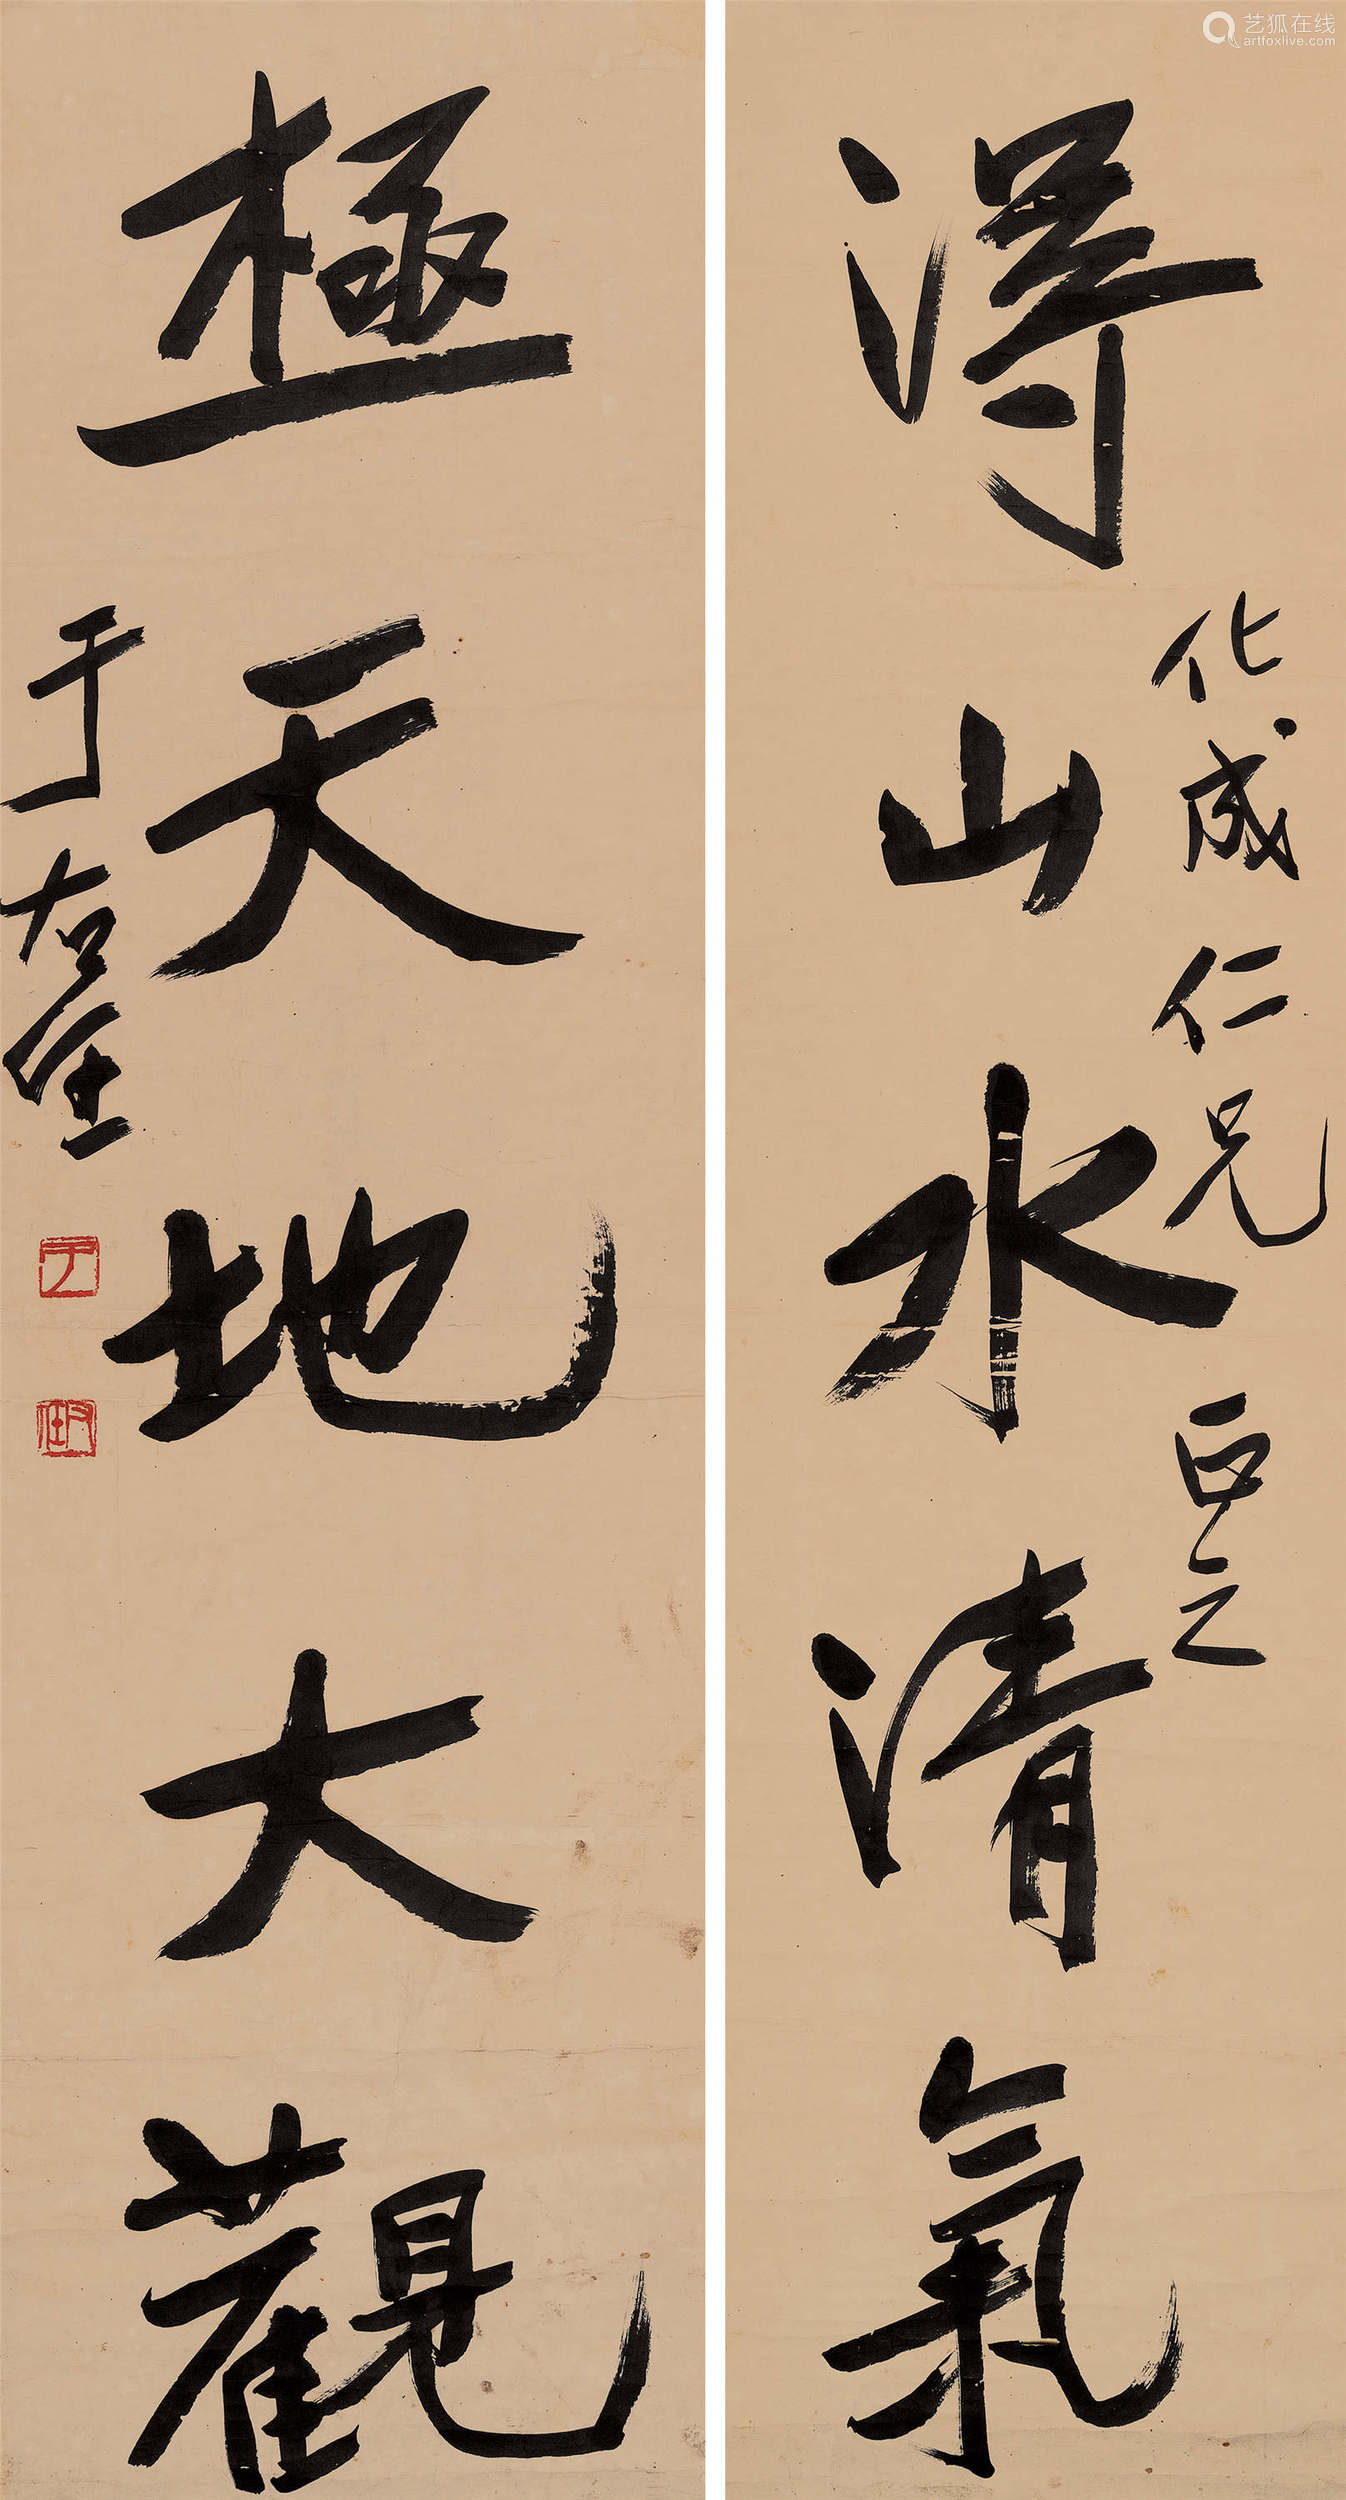 艺狐在线
artfoxlive.com
化成仁兄正之
得山水清氣
極天地大觀
于右任
于
右任